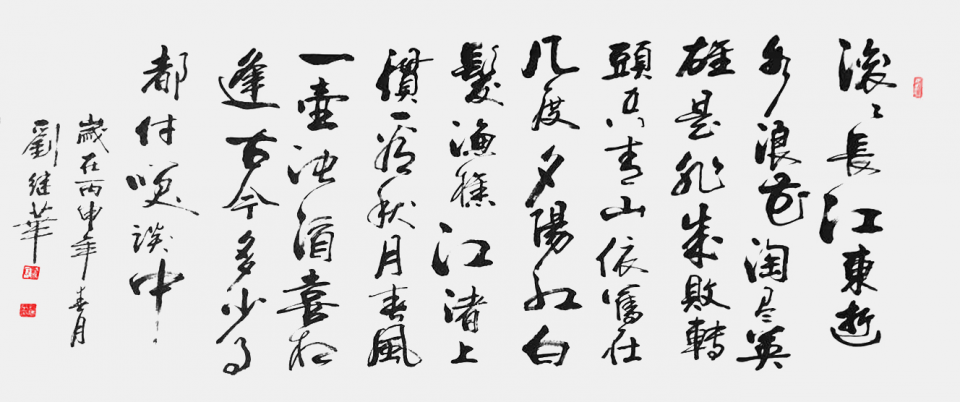 滚々長江東逝
水浪花淘尽英
雄是非成敗轉
頭空青山依舊在
几度夕陽红白
髮漁樵江渚上
慣看秋月春風
一壺浊酒喜相
逢古今多少事
都付笑談中
歲在丙申年春月
劉继華